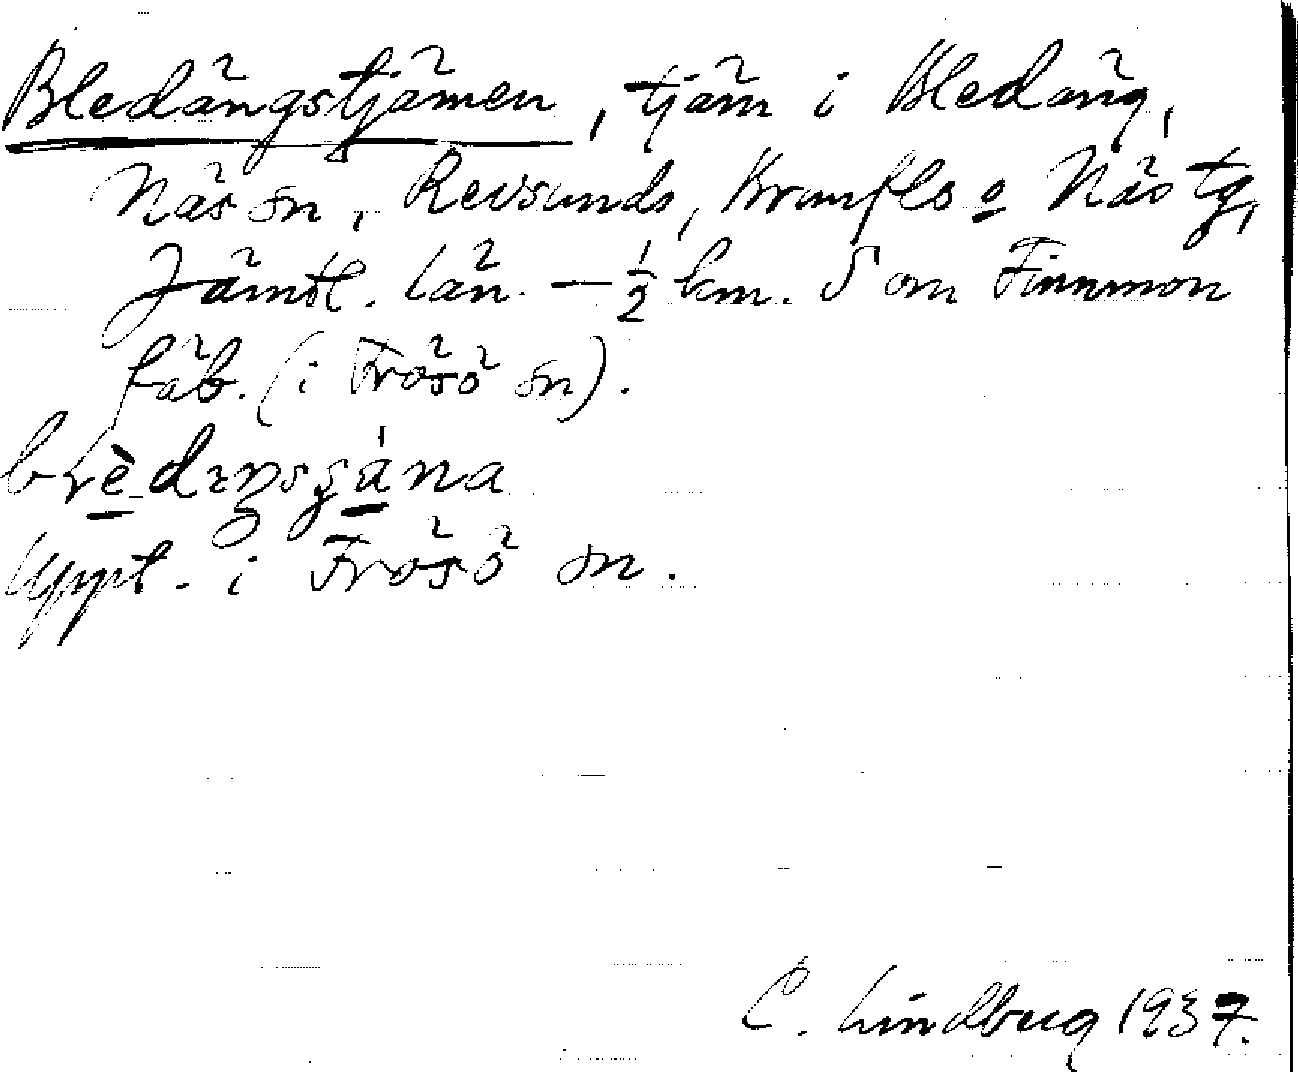 Bledängstjärnen, tjärn i Bledäng,
Näs sn, Revsunds, Brunflo o Näs tg,
Jämtl. län. — ½ km. S om Finnmon
fäb. (i Frösö sn).
Uppt. i Frösö sn.
C. Lindberg 1937.